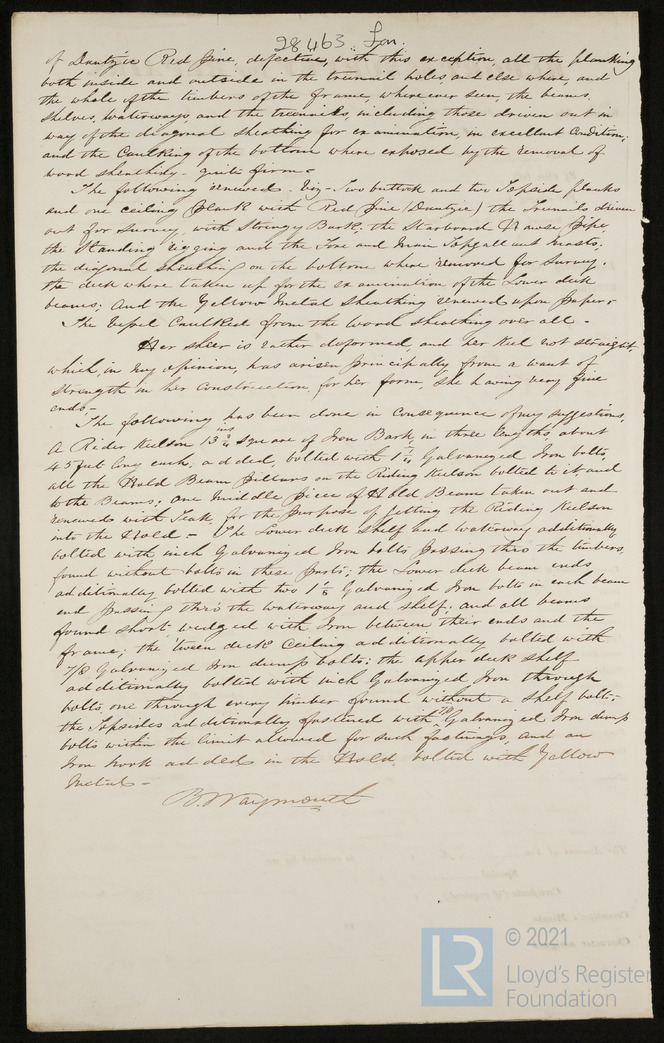 28463 Lon.
of Dantzic Red Pine, defective, with this exception, all the planking
both inside and outside in the treenail holes and else where, and
the whole of the timbers of the frame, where ever seen, the beams,
shelves, waterways, and the treenails, including those driven out in
way of the diagonal sheathing for examination, in excellent condition;
and the Caulking of the bottom where exposed by the removal of
wood sheathing - quite firm -
The following renewed - viz - Two buttock and two Topside planks
and one ceiling Plank with Red Pine (Dantzic) the Trenails driven
out for Survey, with Stringy Bark; the Starboard Hawse Pipe,
the Standing rigging and the Fore and Main Topgallant masts,
the diagonal sheathing on the bottom where removed for Survey,
the deck where taken up for the examination of the Lower deck
beams; and the Yellow Metal Sheathing renewed upon Paper -
The Vessel Caulked from the wood sheathing over all -
Her sheer is rather deformed, and her keel not straight,
which, in my opinion, has arisen principally from a want of
strength in her construction, for her form, she having very fine
ends -
The following has been done in consequence of my suggestions,
A Rider Keelson 13 ins square of Iron Bark, in three lengths about
45 feet long each, added, bolted with Galvanized Iron bolts,
all the Hold Beam Pillars on the Riding Keelson bolted to it, and
to the Beams; one middle piece of Hold Beam taken out and
renewed with Teak, for the purpose of getting the Riding Keelson
into the Hold - The Lower deck shelf and waterway additionally
bolted with inch Galvanized Iron bolts passing thro the timbers,
found without bolts in these parts; the Lower deck beam ends
additionally bolted with two 1 1/8 Galvanized Iron bolts in each beam
end passing thro the waterway and shelf; and all beams
found short wedged with Iron between their ends and the
frame; the 'tween deck ceiling additionally bolted with
7/8 Galvanized Iron dump bolts; the upper deck shelf
additionally bolted with inch Galvanized Iron through
bolts one through every timber found without a shelf bolt;
the Topsides additionally fastened with Galvanized Iron dump
bolts within the limit allowed for such fastenings, and an
Iron hook added in the Hold, bolted with Yellow
Metal -
B. Waymouth
LR
© 2021
Lloyd's Register
Foundation